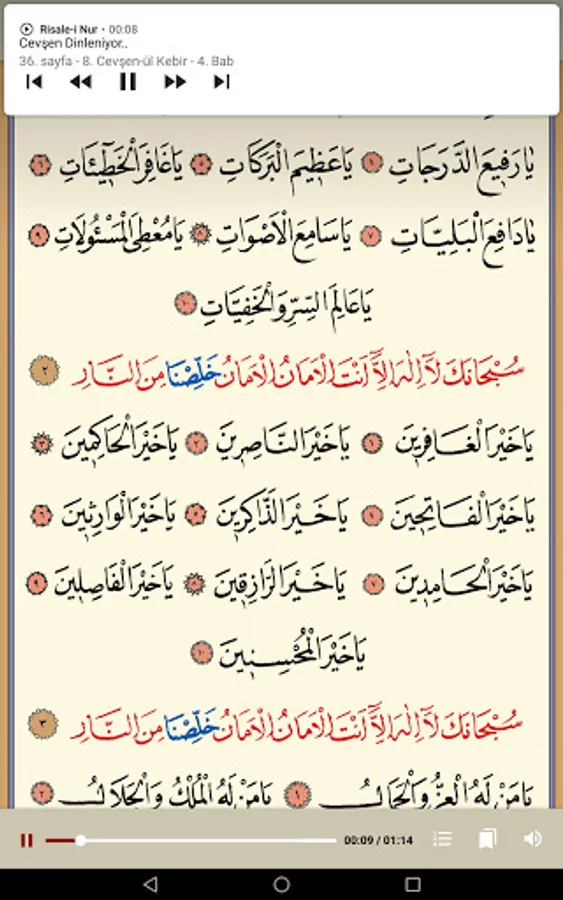 Risale-i Nur • 00:08
Cevşen Dinleniyor..
36. sayfa - 8. Cevşen-ül Kebir - 4. Bab
يَا رَفِيعَ الدَّرَجَاتِ ٤ يَا عَظِيمَ الْبَرَكَاتِ ٥ يَا غَافِرَ الْخَطِيئَاتِ ٦
يَا دَافِعَ الْبَلِيَّاتِ ٧ يَا سَامِعَ الْأَصْوَاتِ ٨ يَا مُعْطِيَ الْمَسْئُولَاتِ ٩
يَا عَالِمَ السِّرِّ وَالْخَفِيَّاتِ ١٠
سُبْحَانَكَ لَا إِلٰهَ إِلَّا أَنْتَ الْأَمَانُ الْأَمَانُ خَلِّصْنَا مِنَ النَّارِ ٢
يَا خَيْرَ الْغَافِرِينَ ١ يَا خَيْرَ النَّاصِرِينَ ٢ يَا خَيْرَ الْحَاكِمِينَ ٣
يَا خَيْرَ الْفَاتِحِينَ ٤ يَا خَيْرَ الذَّاكِرِينَ ٥ يَا خَيْرَ الْوَارِثِينَ ٦
يَا خَيْرَ الْحَامِدِينَ ٧ يَا خَيْرَ الرَّازِقِينَ ٨ يَا خَيْرَ الْفَاصِلِينَ ٩
يَا خَيْرَ الْمُحْسِنِينَ ١٠
سُبْحَانَكَ لَا إِلٰهَ إِلَّا أَنْتَ الْأَمَانُ الْأَمَانُ خَلِّصْنَا مِنَ النَّارِ ٣
يَا مَنْ لَهُ الْعِزُّ وَالْجَمَالُ ١ يَا مَنْ لَهُ الْمُلْكُ وَالْجَلَالُ ٢
00:09 / 01:14